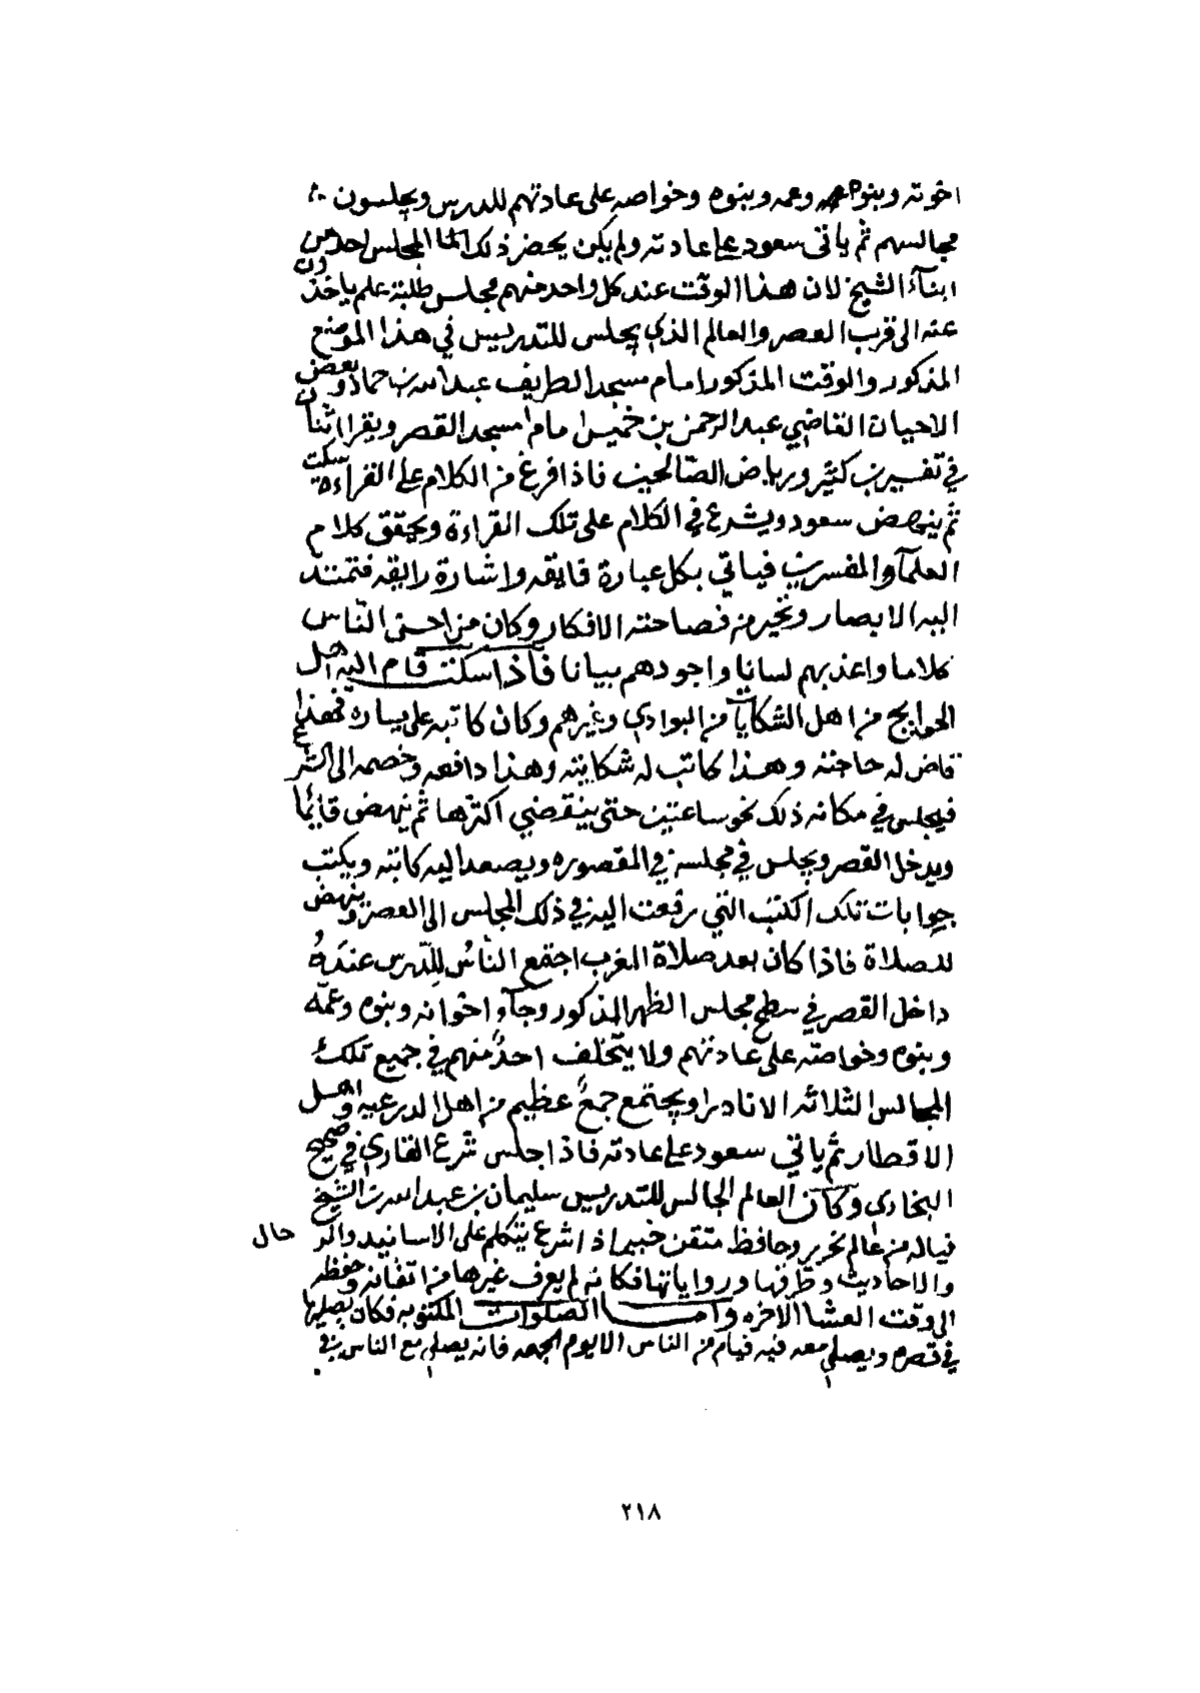 اخوته وبنوه وعمه وبنوه وخواصه على عادتهم للدرس ويجلسون
مجالسهم ثم ياتي سعود على عادته ولم يكن يحضر ذلك المجلس احد من
ابنآء الشيخ لان هذا الوقت عند كل واحد منهم مجلس طلبة علم ياخذون
عنه الى قرب العصر والعالم الذي يجلس للتدريس في هذا الموضع
المذكور والوقت المذكور امام مسجد الطريف عبدالله بن حماد وبعض
الاحيان القاضي عبدالرحمن بن خميس امام مسجد القصر ويقرا اثنان
في تفسير بن كثير ورياض الصالحين فاذا فرغ من الكلام على القراءة سكت
ثم ينهض سعود ويشرع في الكلام على تلك القراءة ويحقق كلام
العلمآء والمفسرين فياتي بكل عبارة فايقه واشارة رايقه فتمتد
اليه الابصار وتحير من فصاحته الافكار وكان من احسن الناس
كلاما واعذبهم لسانا واجودهم بيانا فاذا سكت قام اليه اهل
الحوايج من اهل الشكايات من البوادي وغيرهم وكان كاتبه على يساره فهذا
قاض له حاجته وهذا كاتب له شكايته وهذا دافعه وخصمه الى الشرع
فيجلس في مكانه ذلك نحو ساعتين حتى ينقضي اكثرها ثم ينهض قايما
ويدخل القصر ويجلس في مجلسه في المقصوره ويصعد اليه كاتبه ويكتب
جوابات تلك الكتب التي رفعت اليه في ذلك المجلس الى العصر وينهض
للصلاة فاذا كان بعد صلاة المغرب اجتمع الناسُ للدرس عندهُ
داخل القصر في سطح مجلس الظهر المذكور وجآء اخوانه وبنوه وعمه
وبنوه وخواصه على عادتهم ولا يتخلف احدٌ منهم في جميع تلك
المجالس الثلاثه الا نادرا ويجتمع جمعٌ عظيم من اهل الدرعيه واهل
الاقطار ثم ياتي سعود على عادته فاذا جلس شرع القاري في صحيح
البخاري وكان العالم الجالس للتدريس سليمان بن عبدالله بن الشيخ
فياله من عالم نحرير وحافظ متقن خبير اذا شرع يتكلم على الاسانيد والرجال
والاحاديث وطرقها ورواياتها فكانه لم يعرف غيرها من اتقانه وحفظه
الى وقت العشا الاخره واما الصلوات المكتوبه فكان يصليها
في قصره ويصلي معه فيه فيام من الناس الا يوم الجمعه فانه يصلي مع الناس في
٢١٨